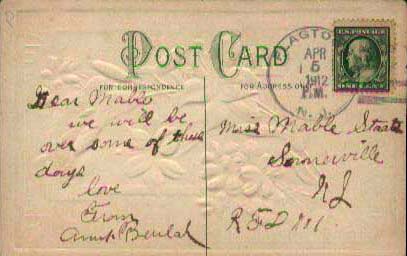 POST CARD
FOR CORRESPONDENCE
FOR ADDRESS ONLY
AGTO
APR
5
1912
P.M.
N.J.
U.S. POSTAGE
ONE CENT
Dear Mable
we will be
over some of these
days
love
From
Aunt Beulah
Miss Mable
Somerville
NJ
RFD No 1